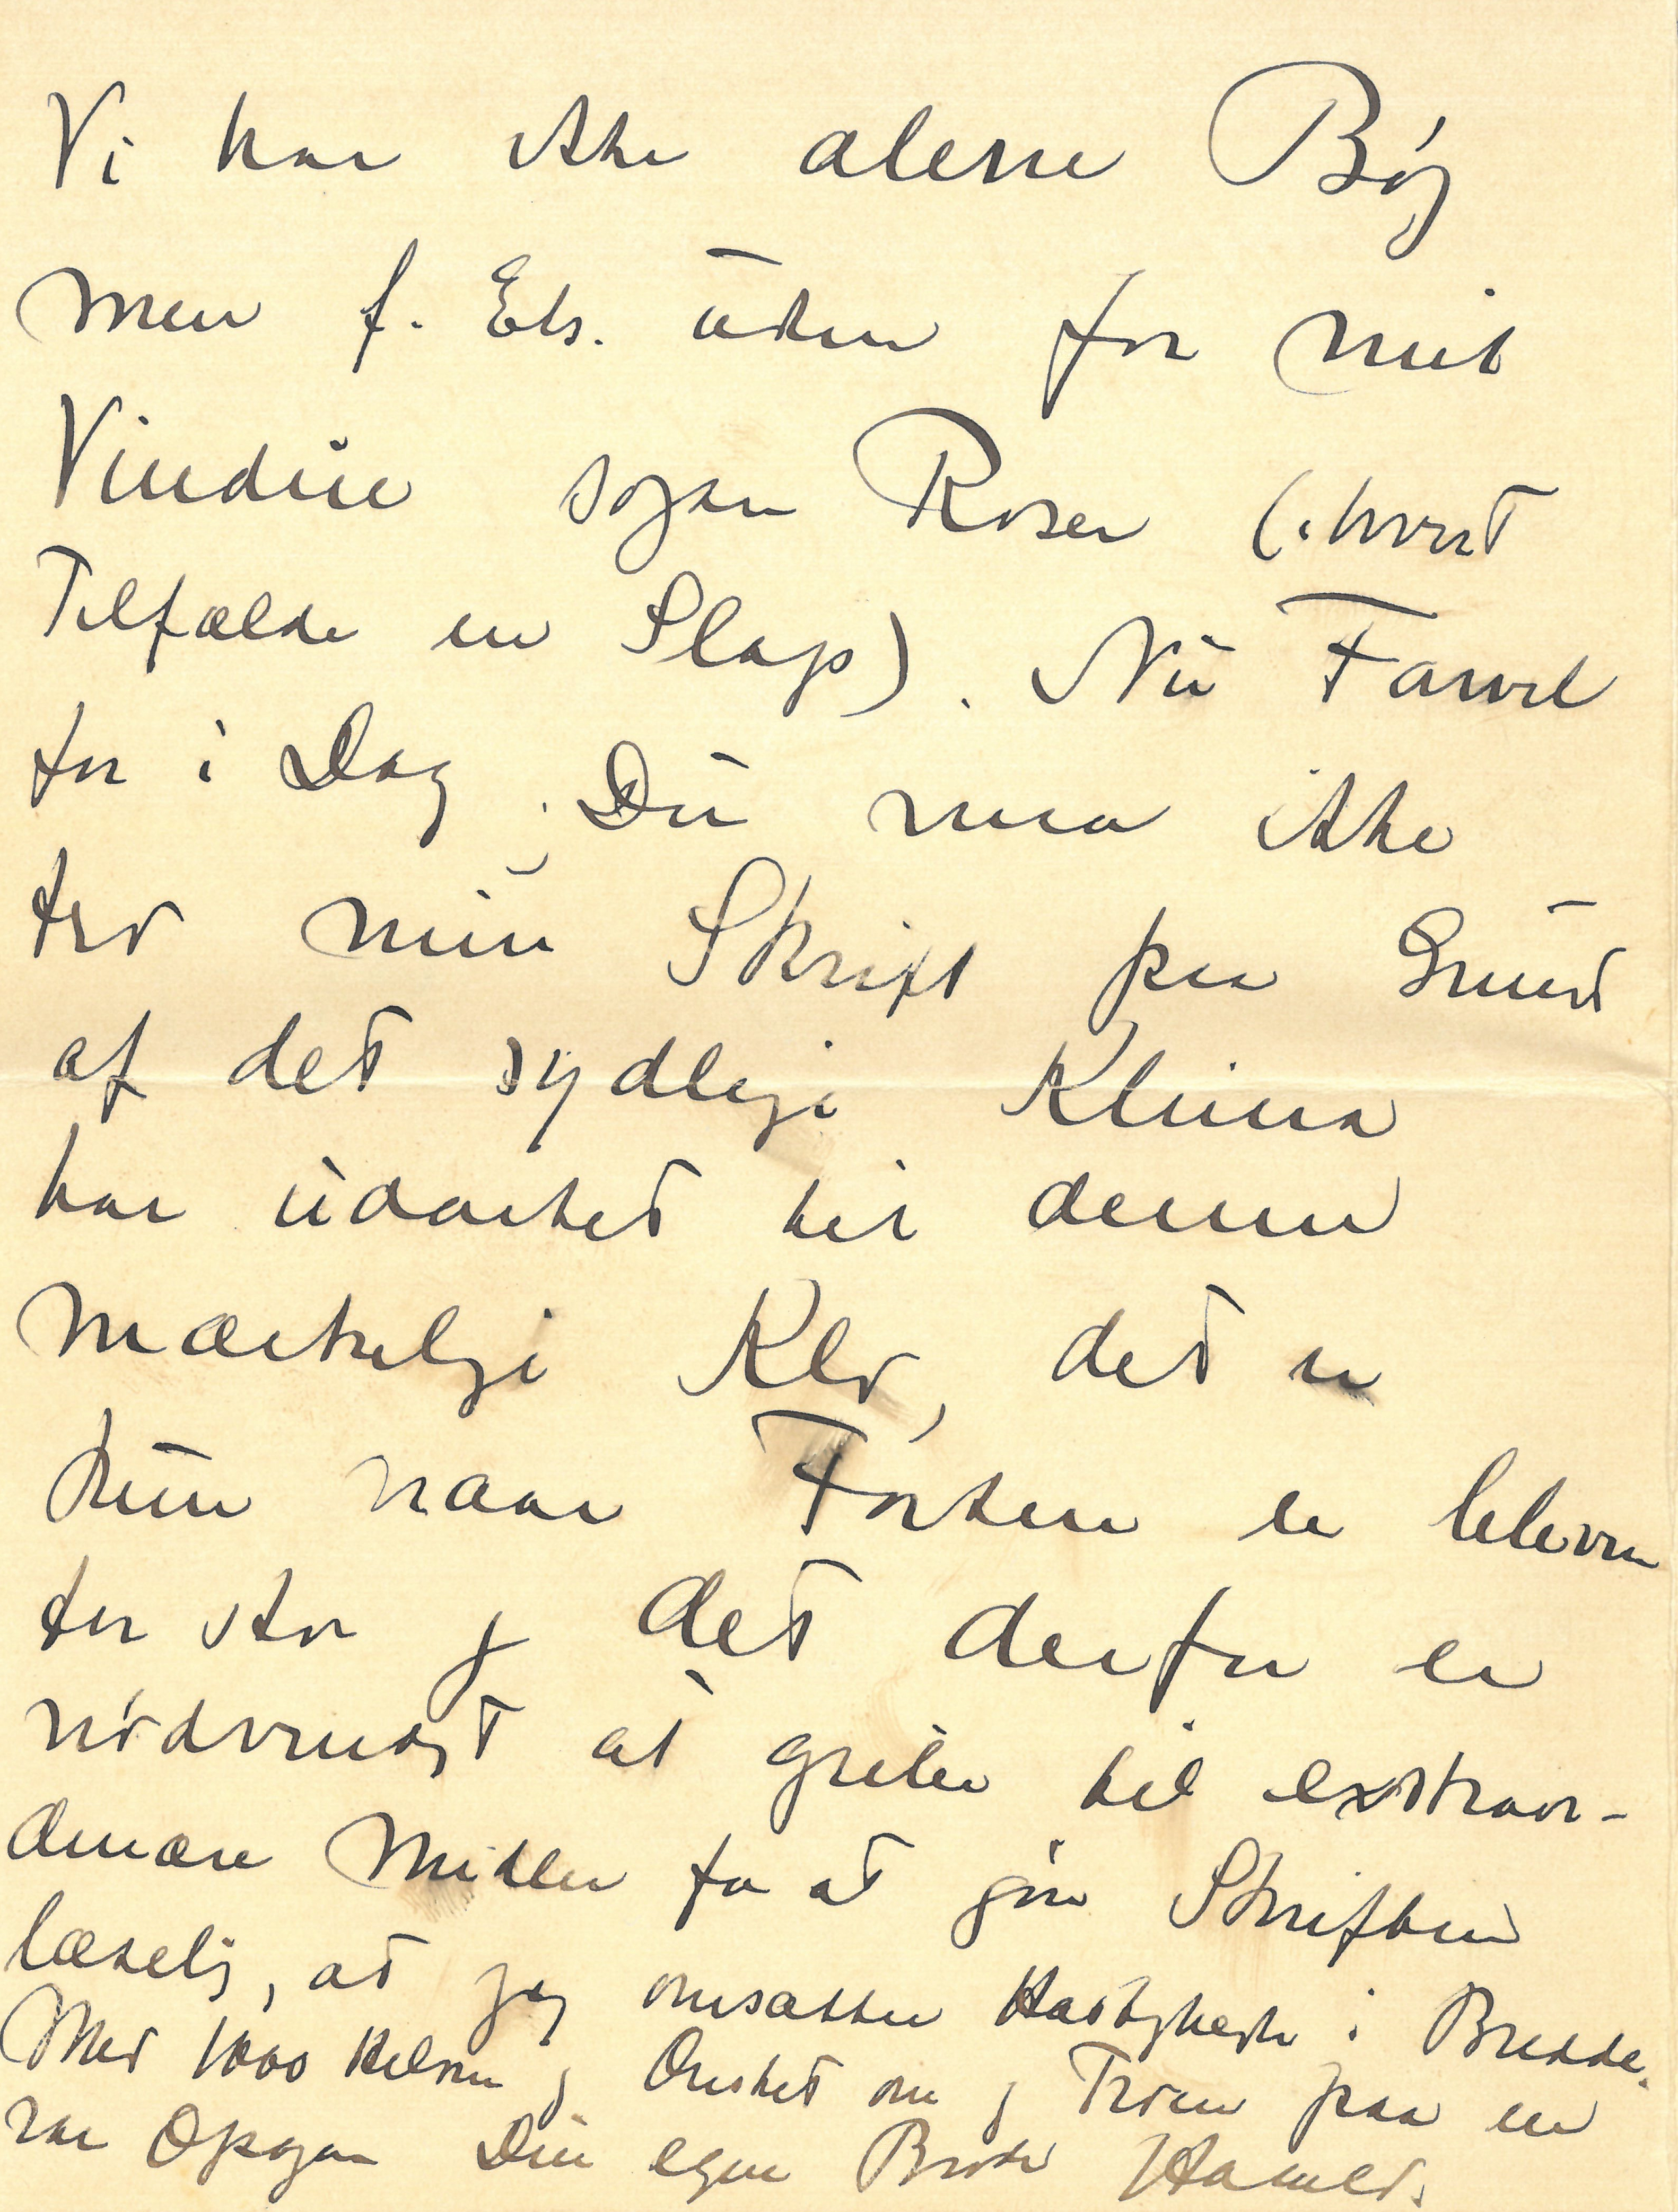 Vi har ikke alene Bøg
men f. Eks. uden for mit
Vindue ogsaa Roser (i hvert
Tilfælde en Slags). Nu Farvel
for i Dag. Du maa ikke
tro min Skrift paa Grund
af det sydlige Klima
har udartet til denne
mærkelige Klo, det er
kun naar Farten er bleven
for stor og det derfor er
nødvendigt at gribe til extraor-
dinære Midler for at gøre Skriften
læselig, at jeg omsætter Hastighed i Bredde.
Med 1000 Hilsen og Ønsket om og Troen paa en
rar Opgan Din egen Broder Harald.